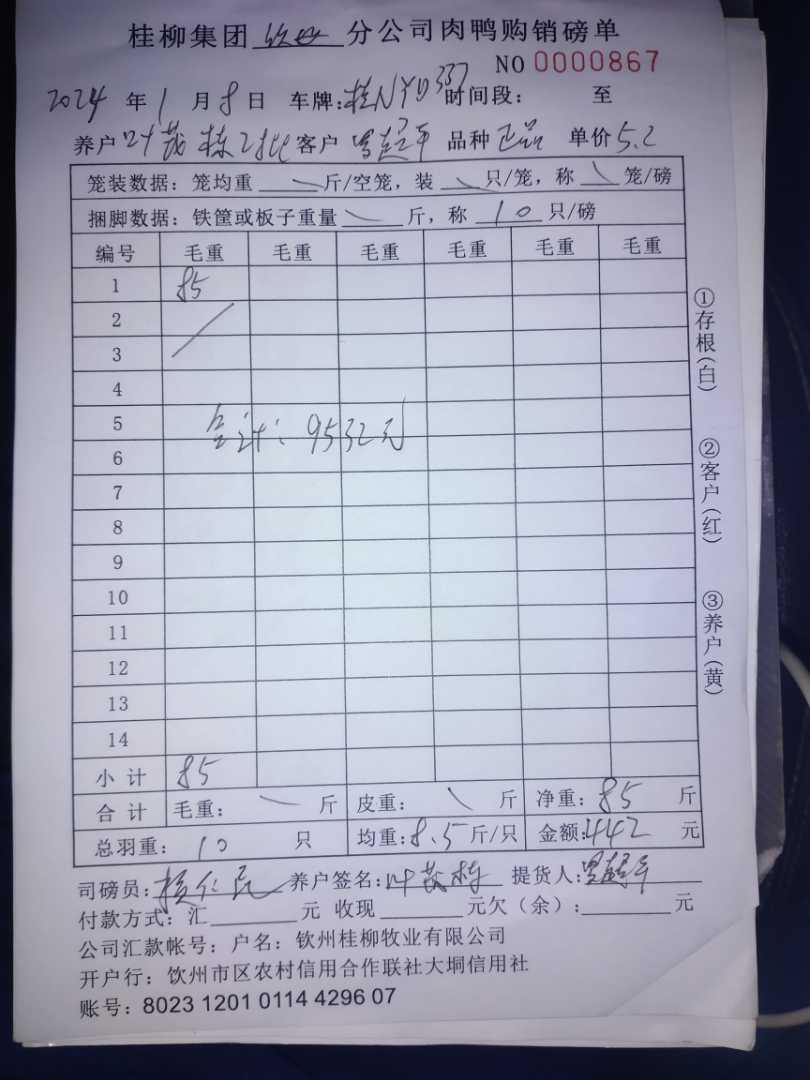 桂柳集团 钦州 分公司肉鸭购销磅单
NO 0000867
2024 年 1 月 8 日 车牌:桂NYD337 时间段: 至
养户 叶茂栋2批 客户 品种 正品 单价 5.2
笼装数据: 笼均重 \ 斤/空笼, 装 \ 只/笼, 称 \ 笼/磅
捆脚数据: 铁筐或板子重量 \ 斤, 称 10 只/磅
编号 毛重 毛重 毛重 毛重 毛重 毛重
1 85
2
3
4
5
合计: 9532元
6
7
8
9
10
11
12
13
14
小 计 85
合 计 毛重: \ 斤 皮重: \ 斤 净重: 85 斤
总羽重: 10 只 均重: 8.5 斤/只 金额: 442 元
司磅员: 养户签名: 叶茂栋 提货人:
付款方式: 汇 元 收现 元欠（余）: 元
公司汇款帐号: 户名: 钦州桂柳牧业有限公司
开户行: 钦州市区农村信用合作联社大垌信用社
账号: 8023 1201 0114 4296 07
①存根(白)
②客户(红)
③养户(黄)